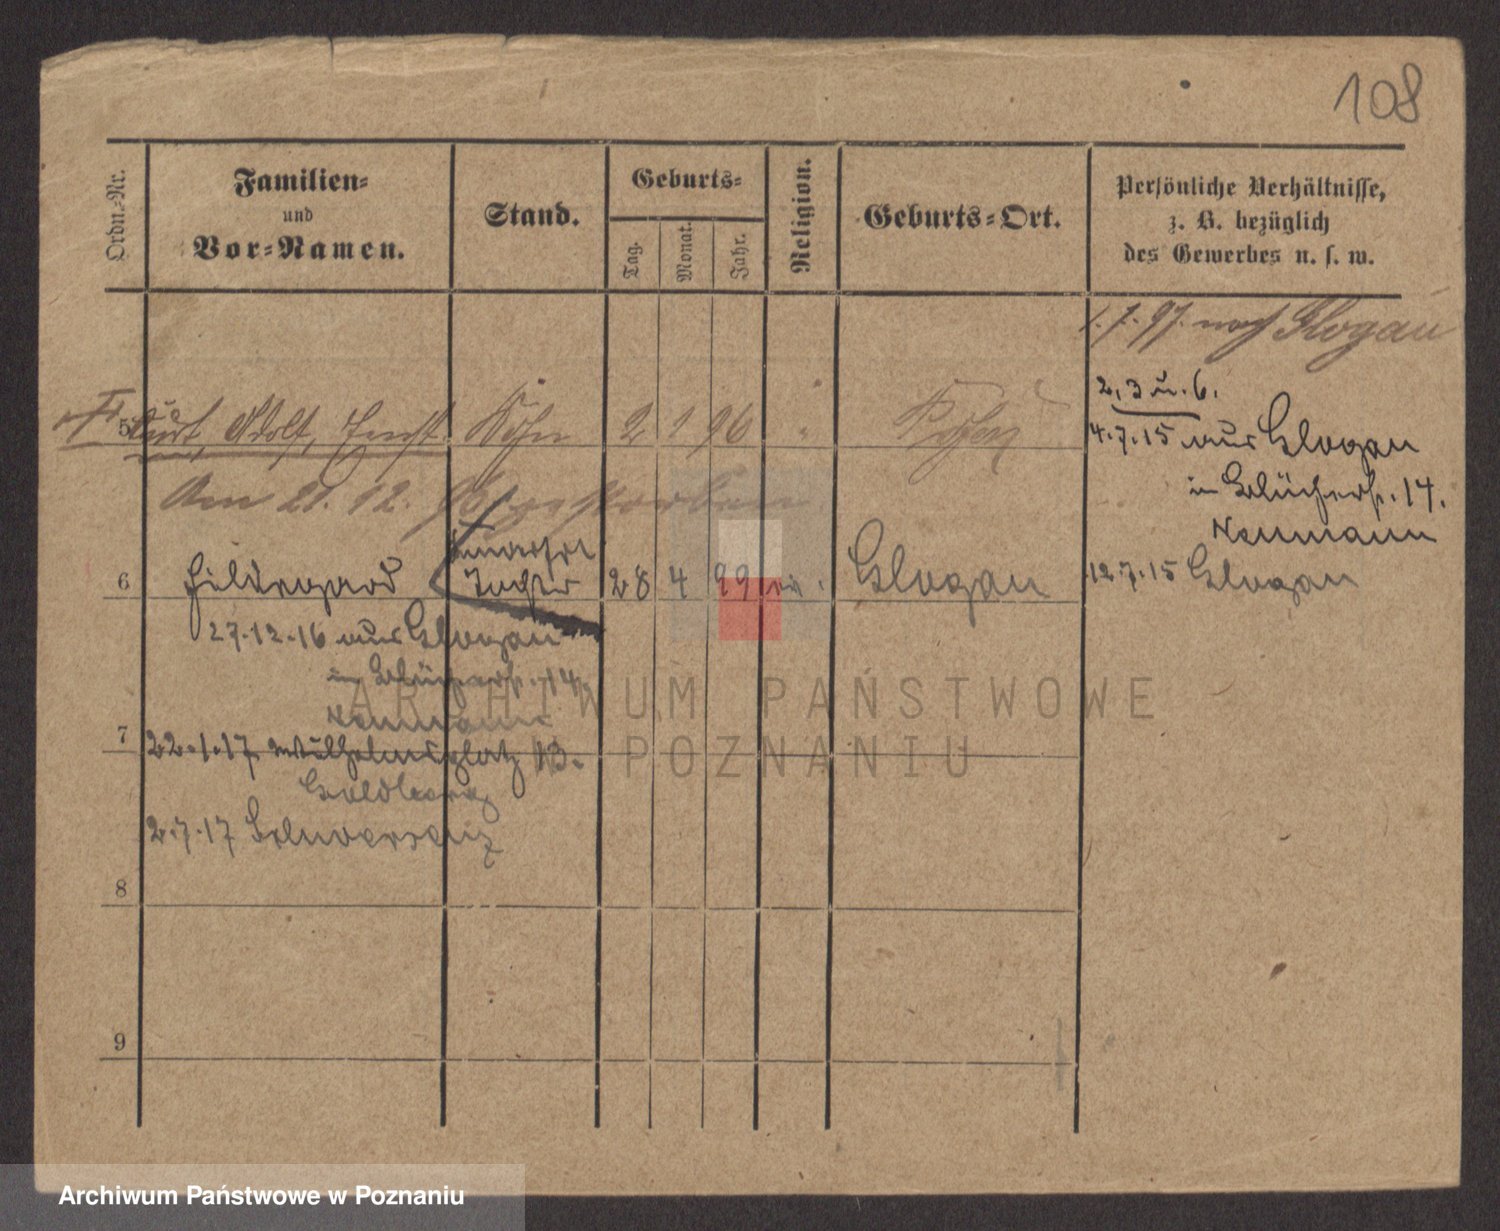 108
Ordn.-Nr.
Familien-
und
Vor-Namen.
Stand.
Geburts-
Tag.
Monat.
Jahr.
Religion.
Geburts-Ort.
Persönliche Verhältnisse,
z. B. bezüglich
des Gewerbes u. s. w.
1. 7. 97. nach Glogau
5 Kurt, Adolf, Ernst Sohn 2 1 96 " Posen
2, 3 u. 6.
4.7.15 aus Glogau
in Blücherstr. 14.
Neumann
Am 21. 12. gestorben
6 Hildegard Tochter 28 4 99 ev. Glogau
12.7.15 Glogau
27.12.16 aus Glogau
in Blücherstr. 14.
Neumann
7
22.1.17 Wilhelmsplatz 13.
Goldberg
2.7.17 Schwersenz
8
9
ARCHIWUM PAŃSTWOWE
W POZNANIU
Archiwum Państwowe w Poznaniu